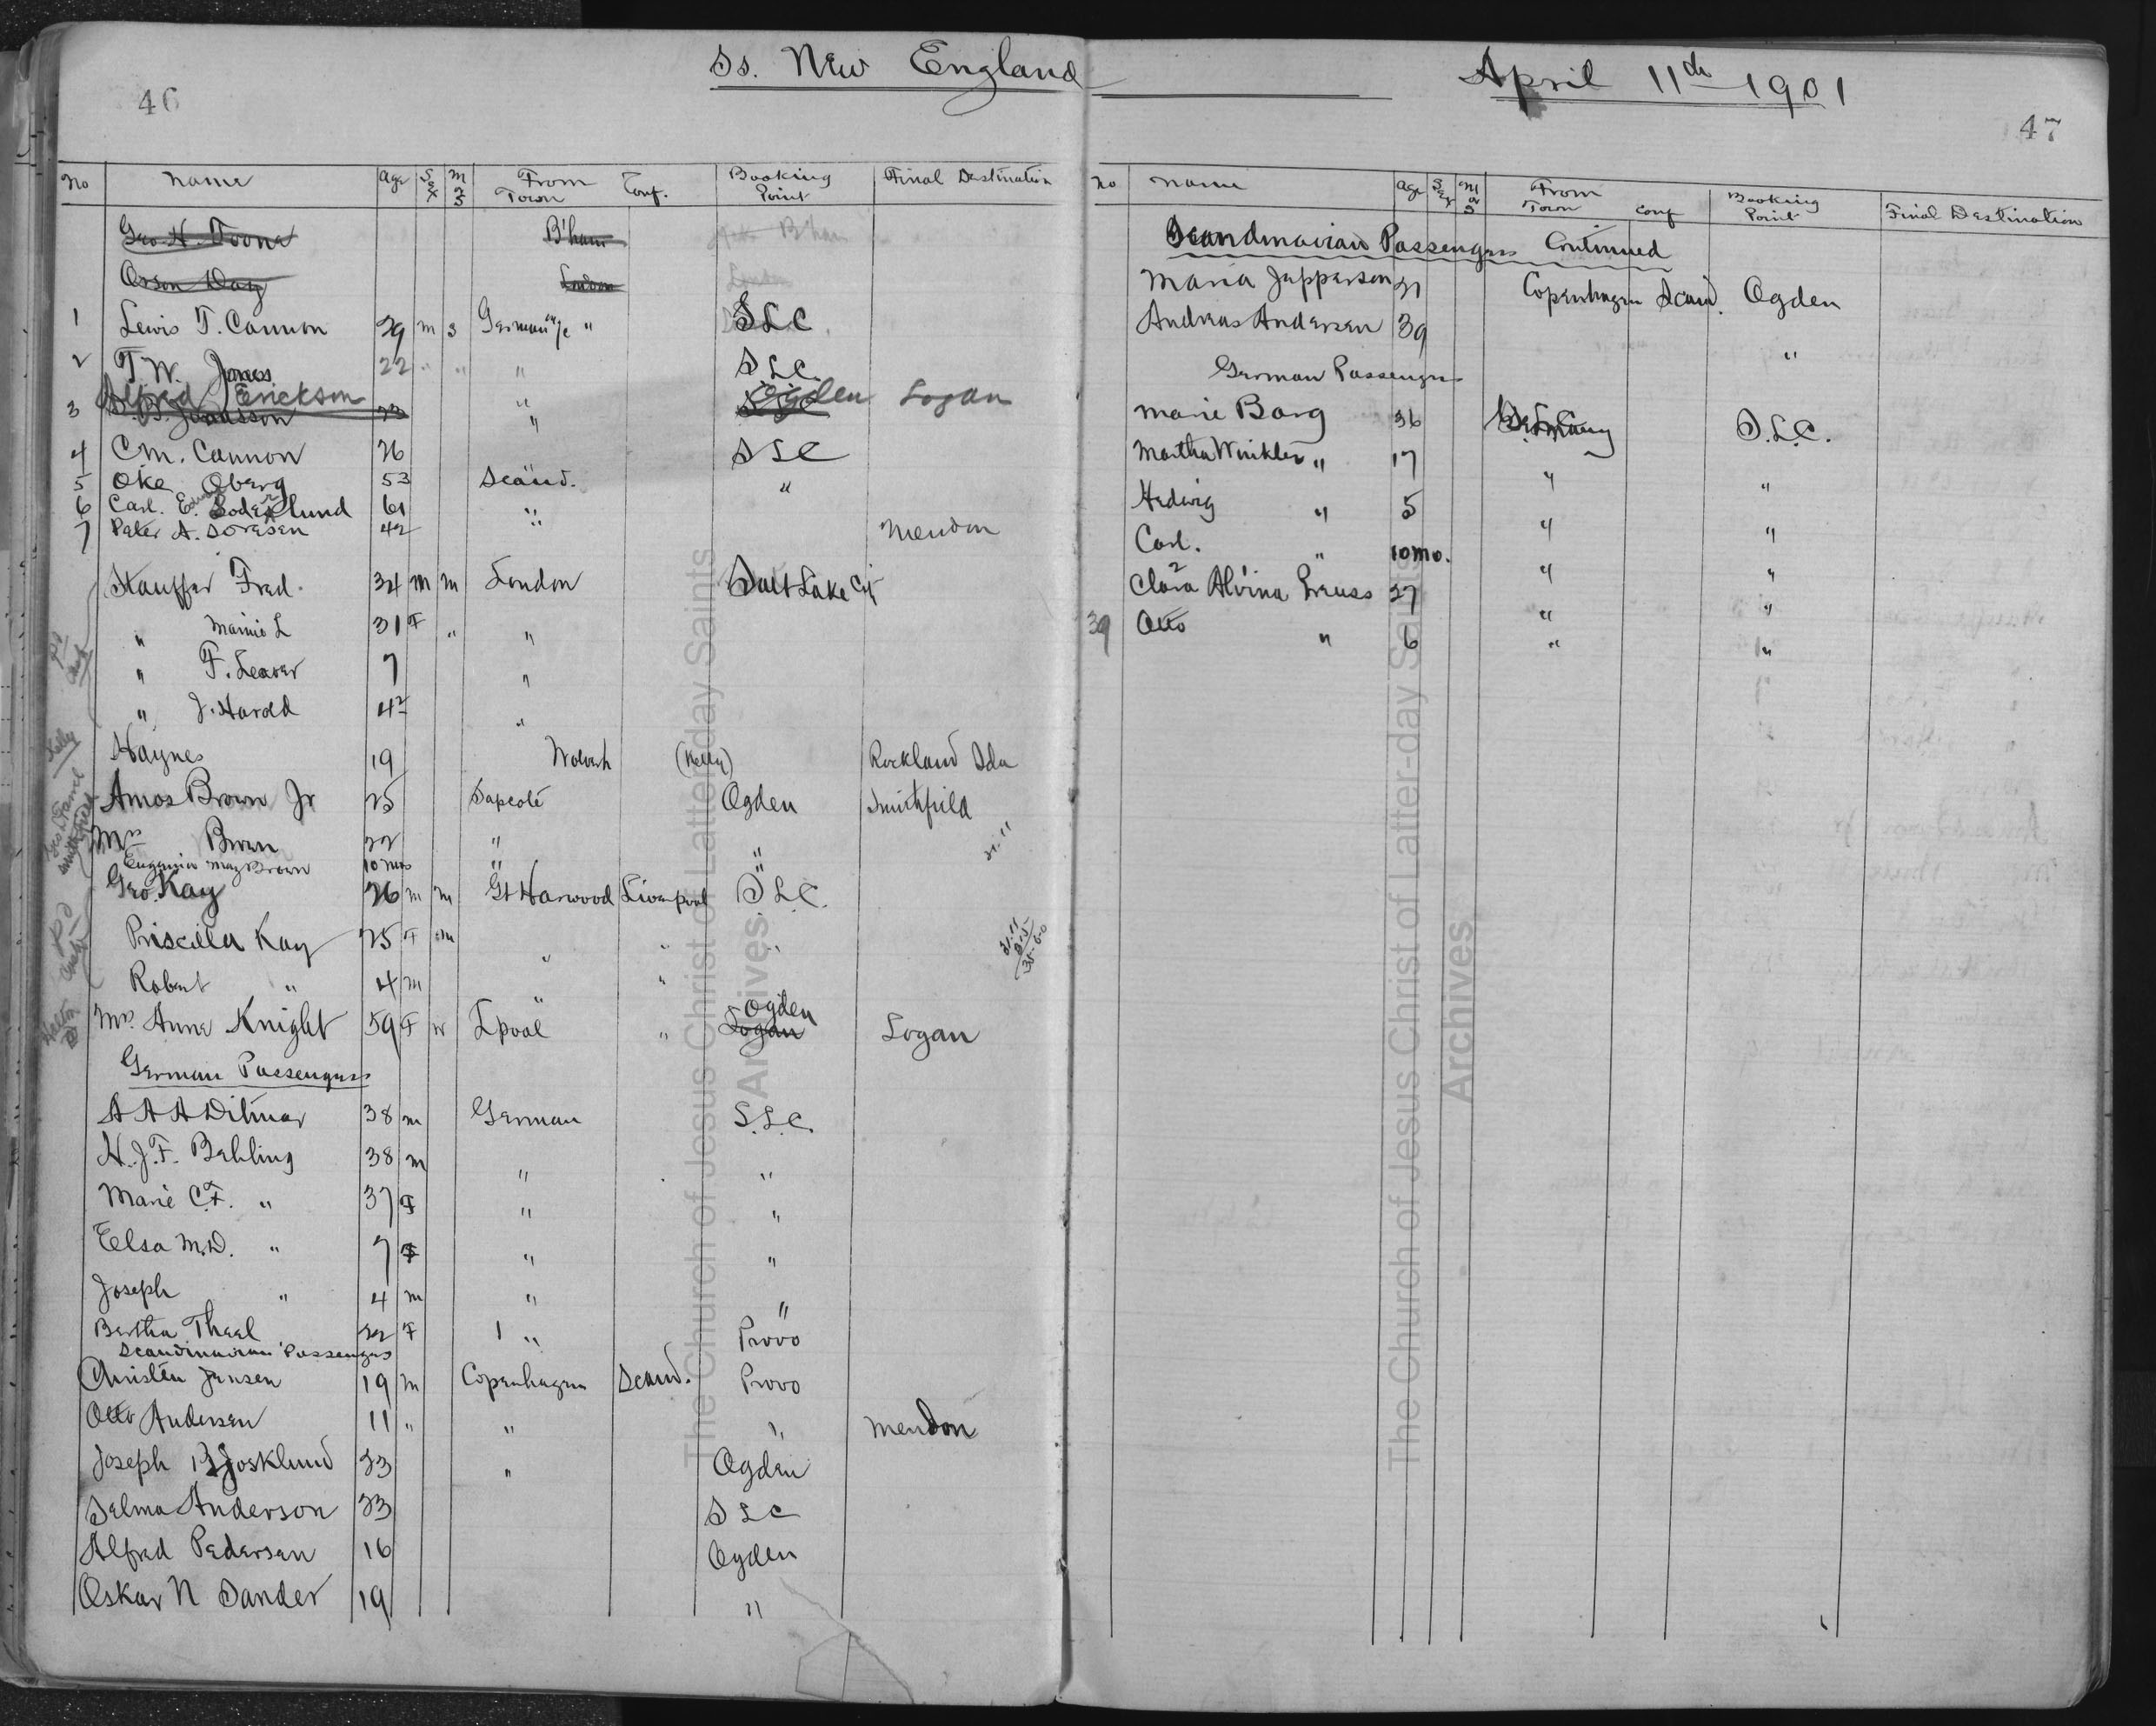 46
Ss. New England
No Name Age Sex M or S From Town Conf. Booking Point Final Destination
Geo. H. Toone B'ham B'ham
Orson Day London London
1 Lewis T. Cannon 29 m s German " S L C
2 T. W. Jones 22 " " " S.L.C.
Alfred Erickson " Ogden Logan
3 23 "
4 C M. Cannon 26 S L C
5 Oke Oberg 53 Scand. "
6 Carl. E. Soderlund 61 "
7 Peter A. Soresen 42 " Mendon
Stauffer Fred. 34 m m London Salt Lake City
" Mamie L 31 F " "
" F. Leaver 7 "
" J. Harold 4 "
Haynes 19 (Kelly) Rockland Ida
Amos Brown Jr 25 Sapcote Ogden Smithfield
Mrs Brown 22 " "
Eugenia May Brown 10 mos " "
Geo. Kay 26 m m Gt Harwood Liverpool S L C.
Priscilla Kay 25 F m " " "
Robert " 4 m " "
Mrs Anna Knight 59 F w Lpool " Logan Ogden Logan
German Passengers
A A A Ditmar 38 m German S.L.C.
H. J. F. Behling 38 m " "
Marie C. F. " 37 F " "
Elsa M. D. " 7 F " "
Joseph " 4 m " "
Bertha Theel 22 F " Provo
Scandinavian Passengers
Christen Jensen 19 m Copenhagen Scand. Provo
Otto Andersen 11 " " " Mendon
Joseph 23 " Ogden
Selma Anderson 23 S L C
Alfred Pedersen 16 Ogden
Oskar N Sander 19 "
April 11th 1901
47
No Name Age Sex M or S From Town Conf Booking Point Final Destination
Scandinavian Passengers Continued
Maria Jepperson 21 Copenhagen Scand. Ogden
Andreas Andersen 39 "
German Passengers
Marie Borg 36 Germany S.L.C.
Martha Winkler " 17 " "
Hedwig " 5 " "
Carl. " 10 mo. " "
Clara Alvina Preuss 27 " "
39 Otto " 6 " "
The Church of Jesus Christ of Latter-day Saints
Archives
The Church of Jesus Christ of Latter-day Saints
Archives